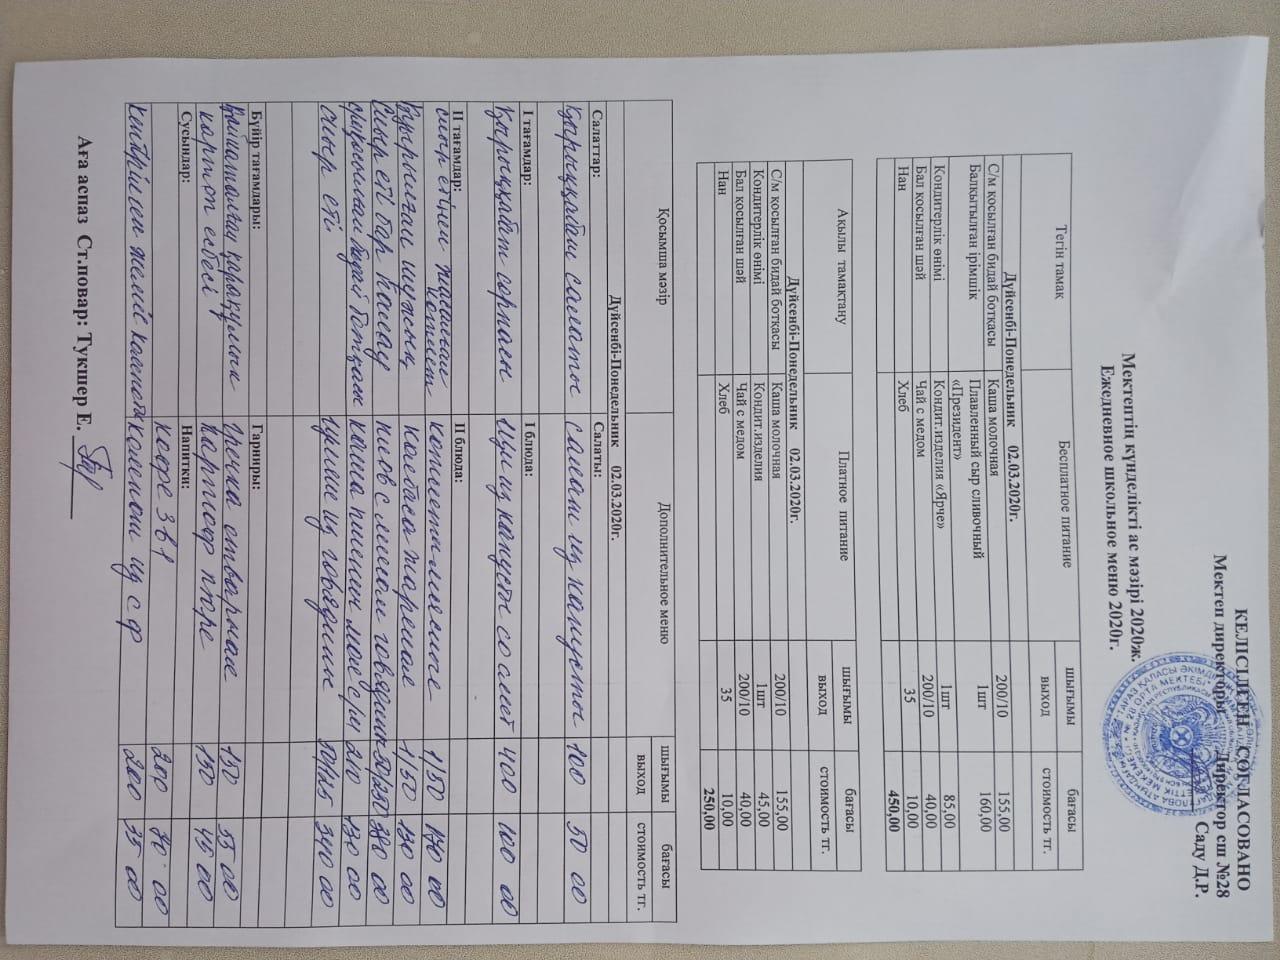 КЕЛІСІЛГЕН СОГЛАСОВАНО
Мектеп директоры Директор сш №28
Салу Д.Р.
Мектептің күнделікті ас мәзірі 2020ж.
Ежедневное школьное меню 2020г.
Тегін тамак Бесплатное питание шығымы выход бағасы стоимость тг.
Дүйсенбі-Понедельник 02.03.2020г.
С/м косылған бидай боткасы Каша молочная 200/10 155,00
Балкытылған ірімшік Плавленный сыр сливочный «Президент» 1шт 160,00
Кондитерлік өнімі Кондит.изделия «Ярче» 1шт 85,00
Бал косылған шәй Чай с медом 200/10 40,00
Нан Хлеб 35 10,00
450,00
Ақылы тамактану Платное питание шығымы выход бағасы стоимость тг.
Дүйсенбі-Понедельник 02.03.2020г.
С/м косылған бидай боткасы Каша молочная 200/10 155,00
Кондитерлік өнімі Кондит.изделия 1шт 45,00
Бал косылған шәй Чай с медом 200/10 40,00
Нан Хлеб 35 10,00
250,00
Қосымша мәзір Дополнительное меню шығымы выход бағасы стоимость тг.
Дүйсенбі-Понедельник 02.03.2020г.
Салаттар: Салаты:
Қырыққабат салаты салат из капусты 100 50 00
І тағамдар: І блюда:
Қырыққабат сорпасы Щи из капусты со смет 400 100 00
ІІ тағамдар: ІІ блюда:
сиыр етінен котлет котлета мясное 1/50 170 00
Қуырылған шұжық Колбаса жареная 1/50 130 00
Сиыр еті бар палау плов с мясом говядины 50/250
бидай ботқасы каша пшенич мол с/м 210 130 00
сиыр еті из говядины 340 00
Бүйір тағамдары: Гарниры:
қарақұмық Гречка отварная 150 55 00
картоп езбесі Картофель пюре 150 45 00
Сусындар: Напитки:
кофе 3 в 1 200
кептірілген жеміс компот из с ф 200 35 00
Аға аспаз Ст.повар: Тукшер Е.